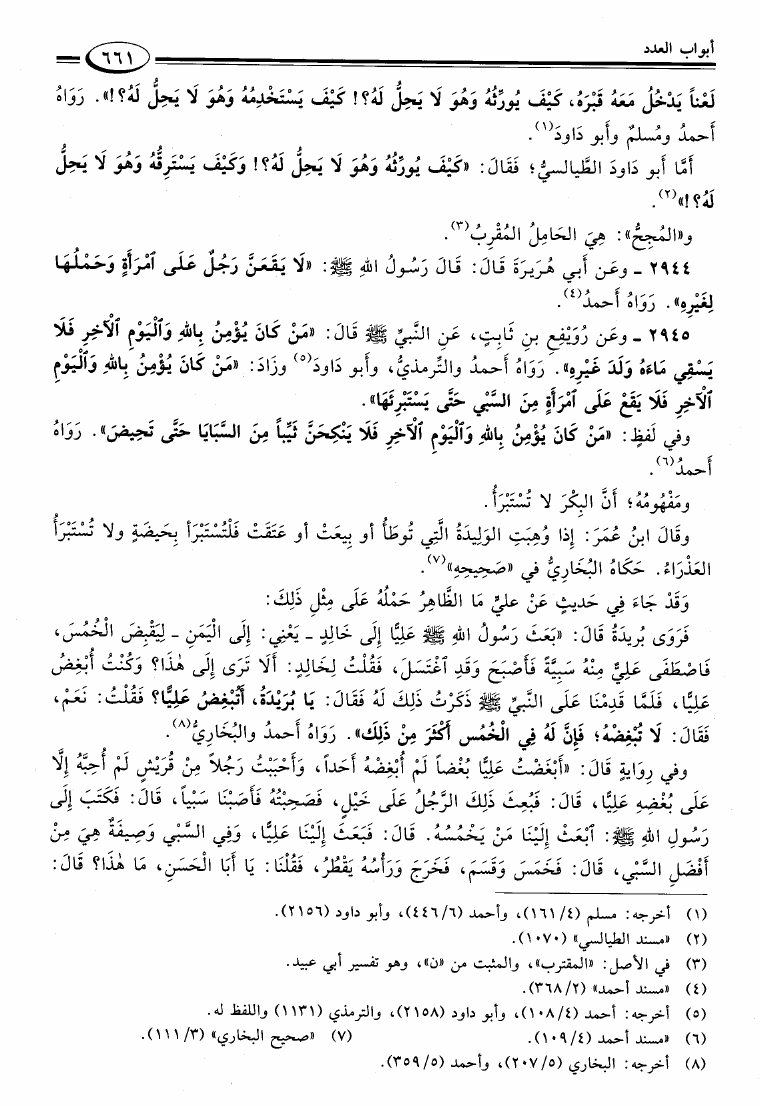 أبواب العدد
٦٦١
لَعْناً يَدْخُلُ مَعَهُ قَبْرَهُ، كَيْفَ يُورِّثُهُ وَهُوَ لَا يَحِلُّ لَهُ؟! كَيْفَ يَسْتَخْدِمُهُ وَهُوَ لَا يَحِلُّ لَهُ؟!». رَوَاهُ
أَحمدُ ومُسلمٌ وأبو دَاودَ(١).
أمَّا أبو دَاودَ الطَّيالسيُّ؛ فَقَالَ: «كَيْفَ يُورِّثُهُ وَهُوَ لَا يَحِلُّ لَهُ؟! وَكَيْفَ يَسْتَرِقُّهُ وَهُوَ لَا يَحِلُّ
لَهُ؟!»(٢).
و«المُجِحُّ»: هِيَ الحَامِلُ المُقْرِبُ(٣).
٢٩٤٤ ـ وعَن أَبي هُرَيرَةَ قَالَ: قَالَ رَسُولُ اللهِ ﷺ: «لَا يَقَعَنَّ رَجُلٌ عَلَى ٱمْرَأَةٍ وَحَمْلُهَا
لِغَيْرِهِ». رَوَاهُ أَحمدُ(٤).
٢٩٤٥ ـ وعَن رُوَيْفِعِ بنِ ثَابِتٍ، عَنِ النَّبيِّ ﷺ قَالَ: «مَنْ كَانَ يُؤْمِنُ بِاللهِ وَٱلْيَوْمِ ٱلْآخِرِ فَلَا
يَسْقِي مَاءَهُ وَلَدَ غَيْرِهِ». رَوَاهُ أَحمدُ والتِّرمذيُّ، وأبو دَاودَ(٥) وزَادَ: «مَنْ كَانَ يُؤْمِنُ بِاللهِ وَٱلْيَوْمِ
ٱلْآخِرِ فَلَا يَقَعْ عَلَى ٱمْرَأَةٍ مِنَ السَّبْيِ حَتَّى يَسْتَبْرِئَهَا».
وفي لَفظٍ: «مَنْ كَانَ يُؤْمِنُ بِاللهِ وَٱلْيَوْمِ ٱلْآخِرِ فَلَا يَنْكِحَنَّ ثَيِّباً مِنَ السَّبَايَا حَتَّى تَحِيضَ». رَوَاهُ
أَحمدُ(٦).
ومَفْهُومُهُ؛ أنَّ البِكْرَ لا تُسْتَبْرَأُ.
وقَالَ ابنُ عُمَرَ: إِذا وُهِبَتِ الوَلِيدَةُ الَّتِي تُوطَأُ أو بِيعَتْ أو عَتَقَتْ فَلْتُسْتَبْرَأ بِحَيضَةٍ ولا تُسْتَبْرَأُ
العَذْرَاءُ. حَكَاهُ البُخَاريُّ في «صَحِيحِهِ»(٧).
وَقَدْ جَاءَ فِي حَديثٍ عَنْ عليٍّ مَا الظَّاهِرُ حَمْلُهُ عَلَى مِثْلِ ذَلِكَ:
فَرَوَى بُريدَةُ قَالَ: «بَعَثَ رَسُولُ اللهِ ﷺ عَلِيًّا إِلَى خَالِدٍ ـ يَعْنِي: إِلَى الْيَمَنِ ـ لِيَقْبِضَ الْخُمُسَ،
فَاصْطَفَى عَلِيٌّ مِنْهُ سَبِيَّةً فَأَصْبَحَ وَقَدِ ٱغْتَسَلَ، فَقُلْتُ لِخَالِدٍ: أَلَا تَرَى إِلَى هَٰذَا؟ وَكُنْتُ أُبْغِضُ
عَلِيًّا، فَلَمَّا قَدِمْنَا عَلَى النَّبيِّ ﷺ ذَكَرْتُ ذَلِكَ لَهُ فَقَالَ: يَا بُرَيْدَةُ، أَتُبْغِضُ عَلِيًّا؟ فَقُلْتُ: نَعَمْ،
فَقَالَ: لَا تُبْغِضْهُ؛ فَإِنَّ لَهُ فِي الْخُمُسِ أَكْثَرَ مِنْ ذَلِكَ». رَوَاهُ أَحمدُ والبُخَاريُّ(٨).
وفي رِوَايةٍ قَالَ: «أَبْغَضْتُ عَلِيًّا بُغْضاً لَمْ أُبْغِضْهُ أَحَداً، وَأَحْبَبْتُ رَجُلاً مِنْ قُرَيْشٍ لَمْ أُحِبَّهُ إِلَّا
عَلَى بُغْضِهِ عَلِيًّا، قَالَ: فَبُعِثَ ذَلِكَ الرَّجُلُ عَلَى خَيْلٍ، فَصَحِبْتُهُ فَأَصَبْنَا سَبْياً، قَالَ: فَكَتَبَ إِلَى
رَسُولِ اللهِ ﷺ: ٱبْعَثْ إِلَيْنَا مَنْ يَخْمُسُهُ. قَالَ: فَبَعَثَ إِلَيْنَا عَلِيًّا، وَفِي السَّبْيِ وَصِيفَةٌ هِيَ مِنْ
أَفْضَلِ السَّبْيِ، قَالَ: فَخَمَسَ وَقَسَمَ، فَخَرَجَ وَرَأْسُهُ يَقْطُرُ، فَقُلْنَا: يَا أَبَا الْحَسَنِ، مَا هَٰذَا؟ قَالَ:
(١) أخرجه: مسلم (٤/ ١٦١)، وأحمد (٦/ ٤٤٦)، وأبو داود (٢١٥٦).
(٢) «مسند الطيالسي» (١٠٧٠).
(٣) في الأصل: «المقترب»، والمثبت من «ن»، وهو تفسير أبي عبيد.
(٤) «مسند أحمد» (٢/ ٣٦٨).
(٥) أخرجه: أحمد (٤/ ١٠٨)، وأبو داود (٢١٥٨)، والترمذي (١١٣١) واللفظ له.
(٦) «مسند أحمد (٤/ ١٠٩). (٧) «صحيح البخاري» (٣/ ١١١).
(٨) أخرجه: البخاري (٥/ ٢٠٧)، وأحمد (٥/ ٣٥٩).